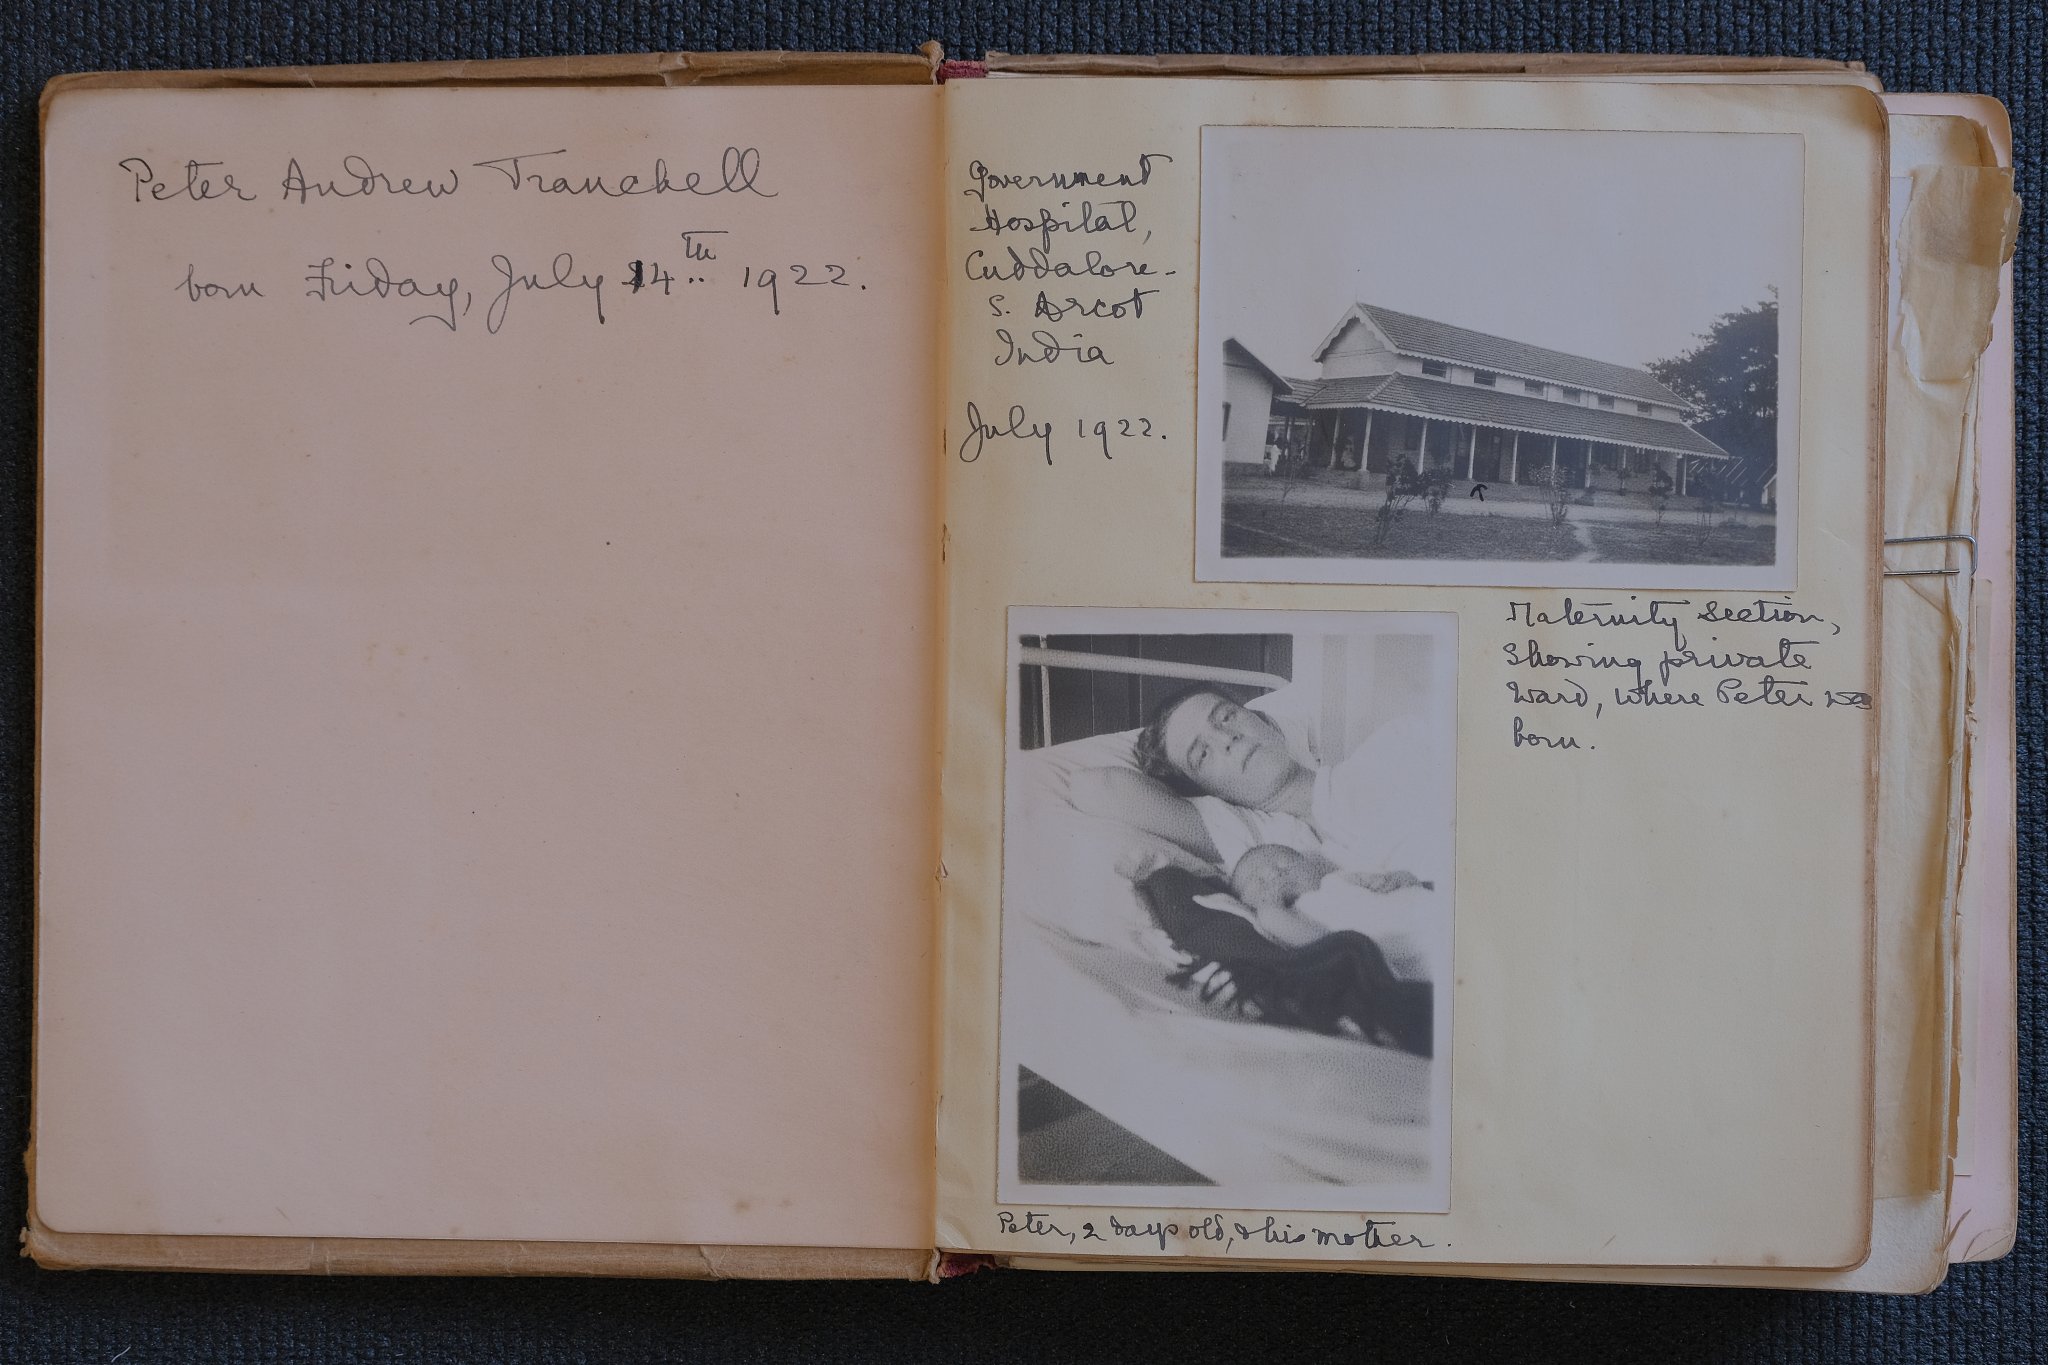 Peter Andrew Tranchell
born Friday, July 14th 1922.
Government
Hospital,
Cuddalore-
S. Arcot
India
July 1922.
Maternity Section,
Showing private
Ward, where Peter was
born.
Peter, 2 days old, & his mother.